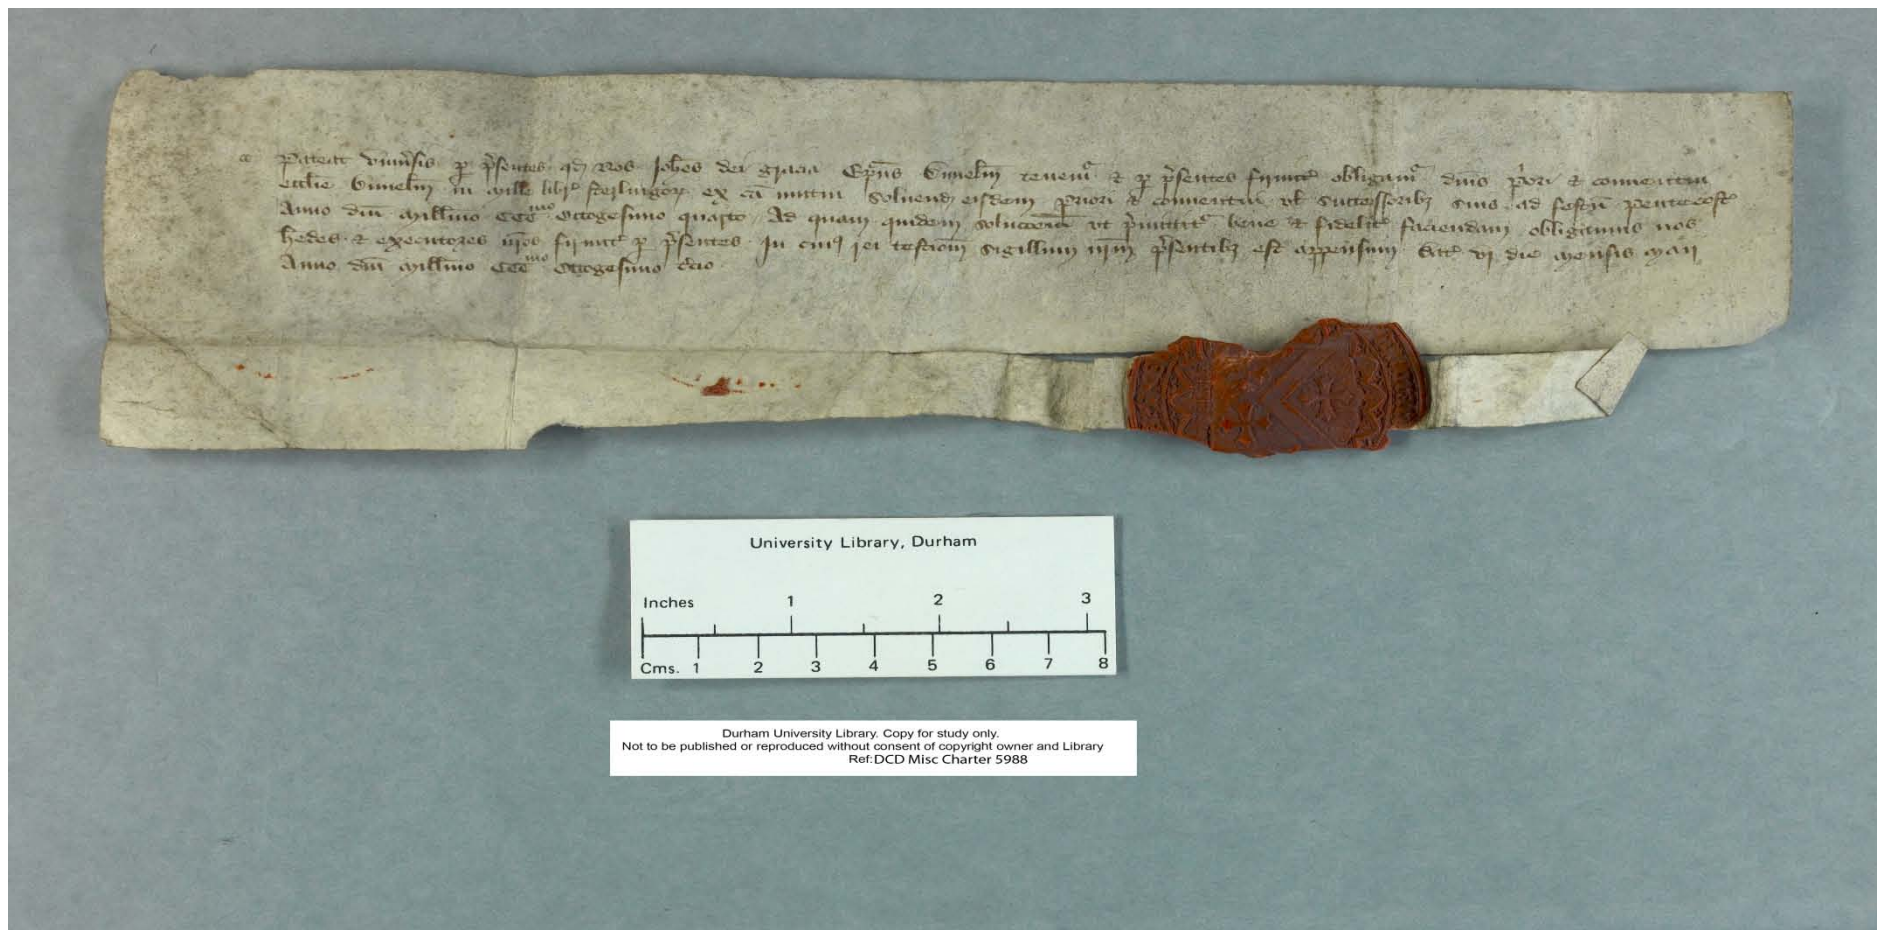 Pateat univ̄sis p̲ p̄sentes qd̄ Nos Joh̄es dei gracia Ep̄us Dunelm̄ tenem̄ & p̲ p̄sentes firmit̄ obligam̄ dn̄is p̄ori & conventui
eccl̄ie Dunelm̄ in Mille libr̄ sterlingor̄ ex cā mutui Solvend̄ eisdem Priori & conventui vl̄ Successoribȝ suis ad festū Pentecost̄
Anno dn̄i Mill̄mo CCCmo Octogesimo quarto Ad quam quidem soluc̄oem ut p̄mittit̄ bene & fidelit̄ faciendam obligamus nos
h̄edes & executores nr̄os firmit̄ p̲ p̄sentes In cuiꝯ rei testiom̄ Sigillum nr̄m p̄sentibȝ est appensum Dat̄ vj die Mensis Maij
Anno dn̄i Mill̄mo CCCmo Octogesimo t̄cio
University Library, Durham
Inches 1 2 3
Cms. 1 2 3 4 5 6 7 8
Durham University Library. Copy for study only.
Not to be published or reproduced without consent of copyright owner and Library
Ref:DCD Misc Charter 5988